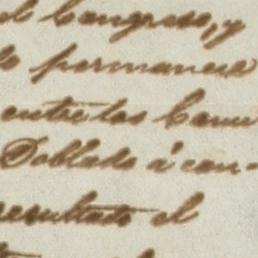 el Congreso, y
permanece
entre los Com
Doblado á con-
resultado el